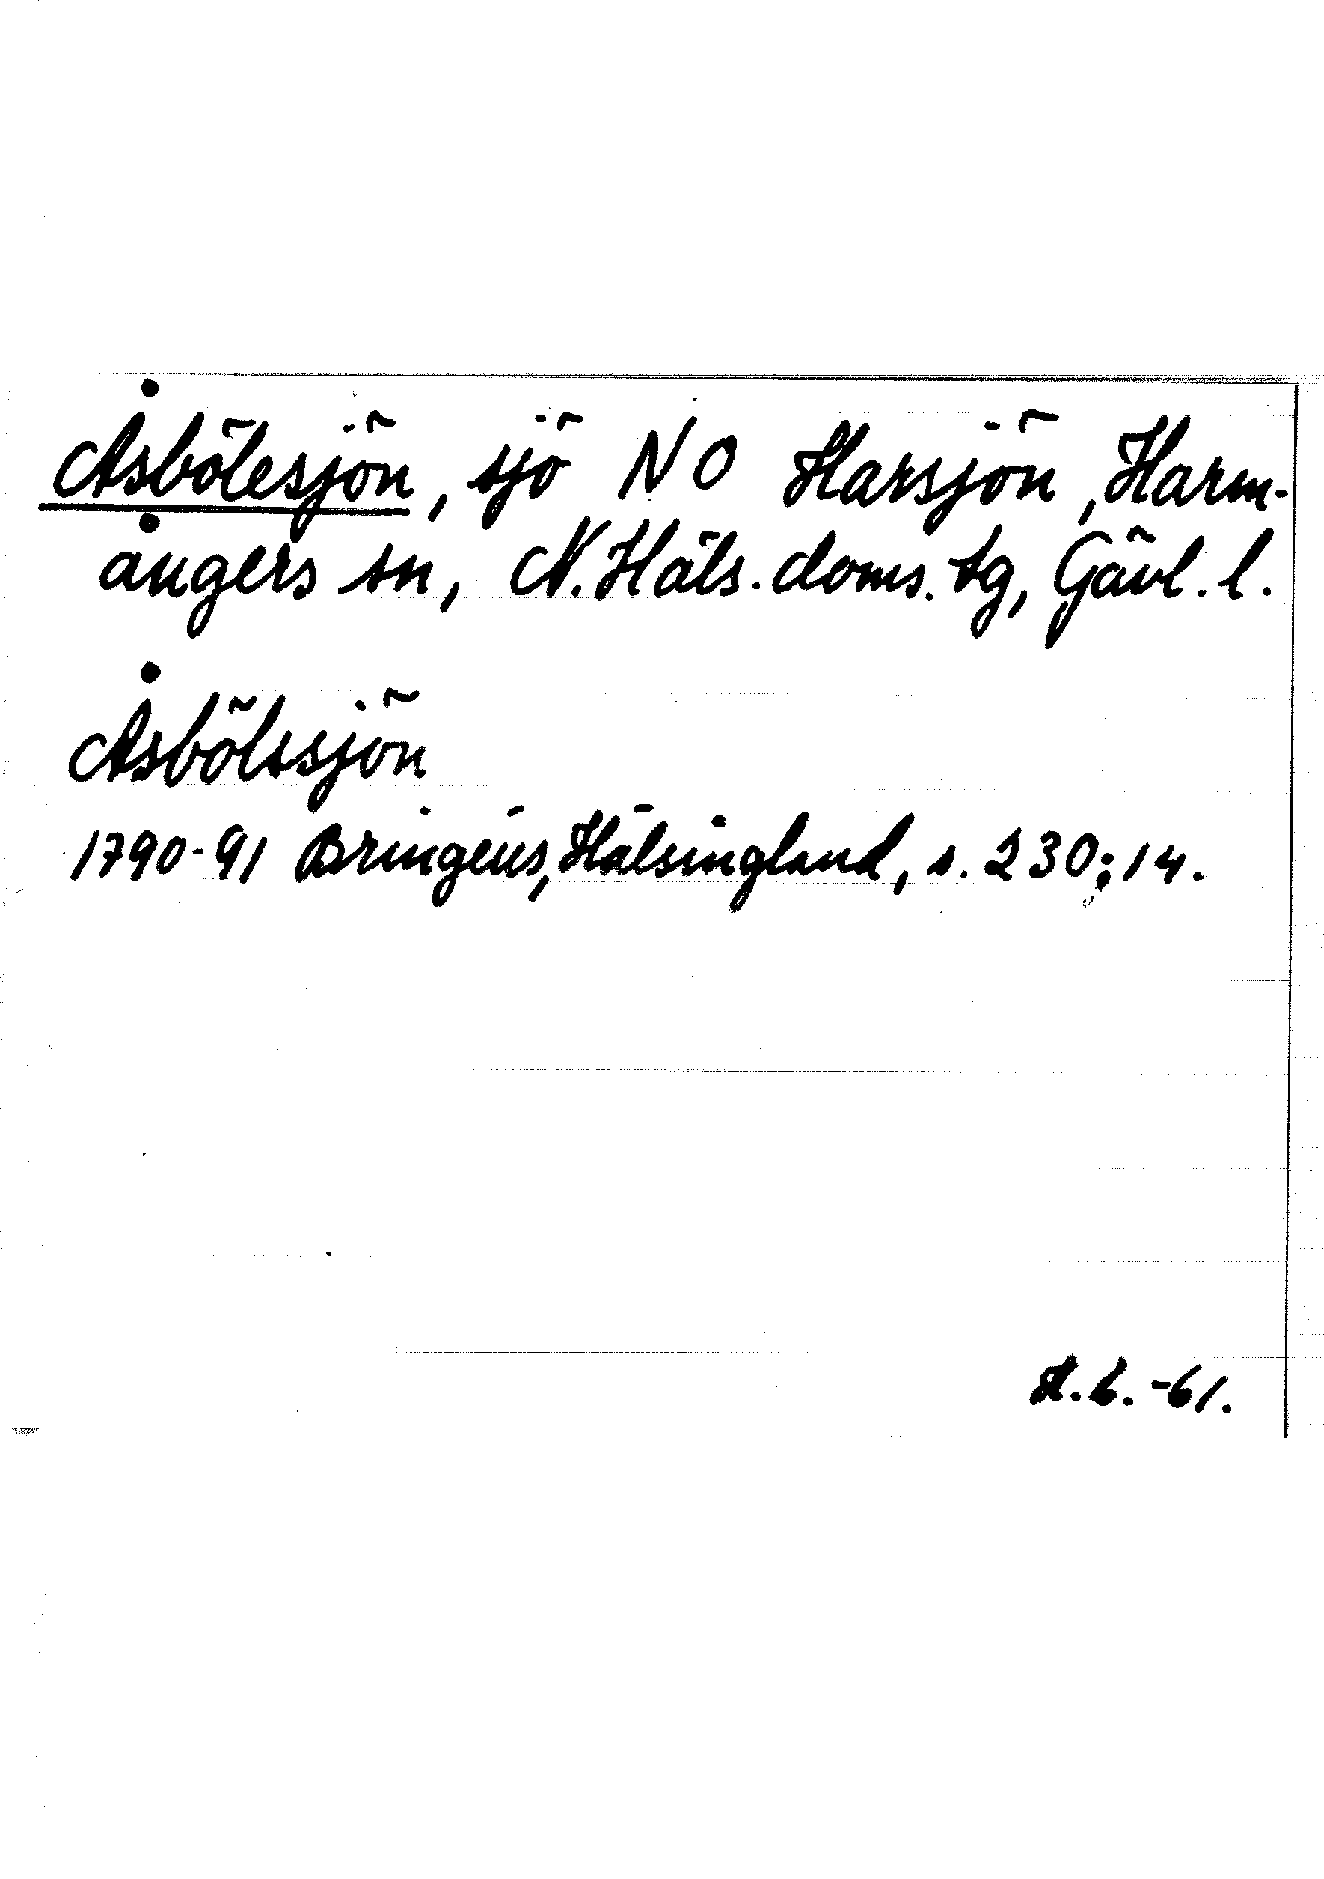 Åsbölesjön, sjö NO Harsjön, Harm-
ångers sn, N. Häls. doms. tg, Gävl. l.
Åsbölssjön
1790-91 Bringéus, Hälsingland, s. 230:14.
-61.